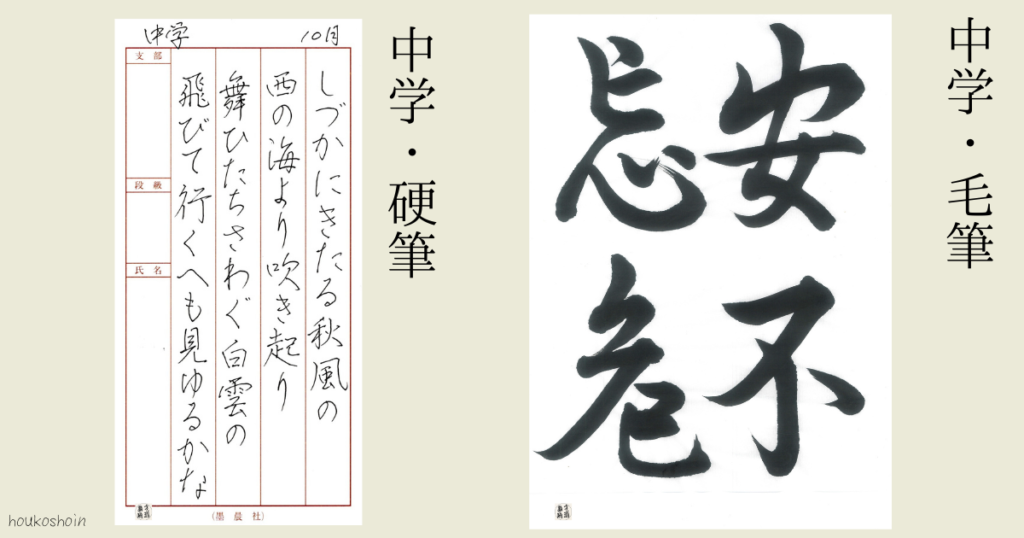 中学・毛筆
安不
忘危
中学・硬筆
中学 10月
しづかにきたる秋風の
西の海より吹き起り
舞ひたちさわぐ白雲の
飛びて行くへも見ゆるかな
支部
段級
氏名
(墨晨社)
houkoshoin